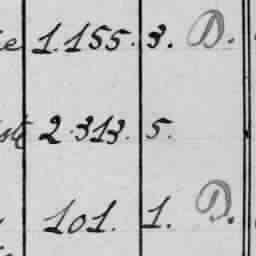 1.155. 3. D.
2.313. 5.
101. 1. D.